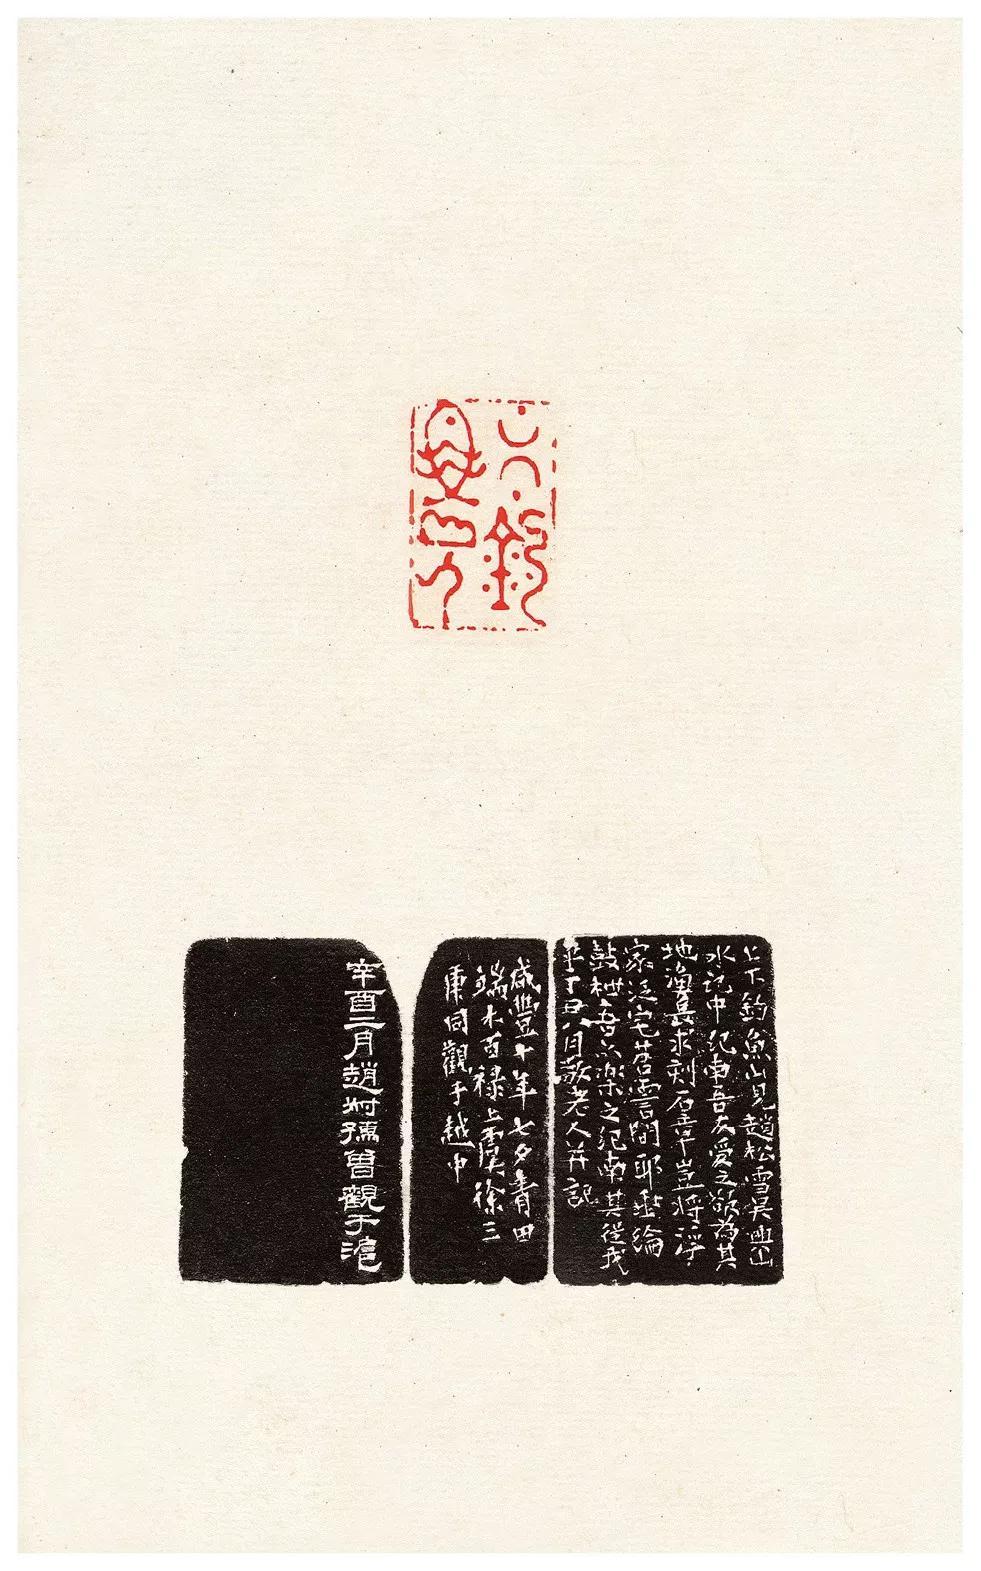 上下釣
魚山人
上下釣魚山見趙松雪吳興山
水記中紀南吾友愛之欲為其
地漁長求刻石章豈將浮
家泛宅苕霅間耶垂綸
鼓枻吾亦樂之紀南其從我
乎丁丑八月敬老人并記
咸豐十年七夕青田
端木百祿上虞徐三
庚同觀于越中
辛酉二月趙叔孺曾觀于滬